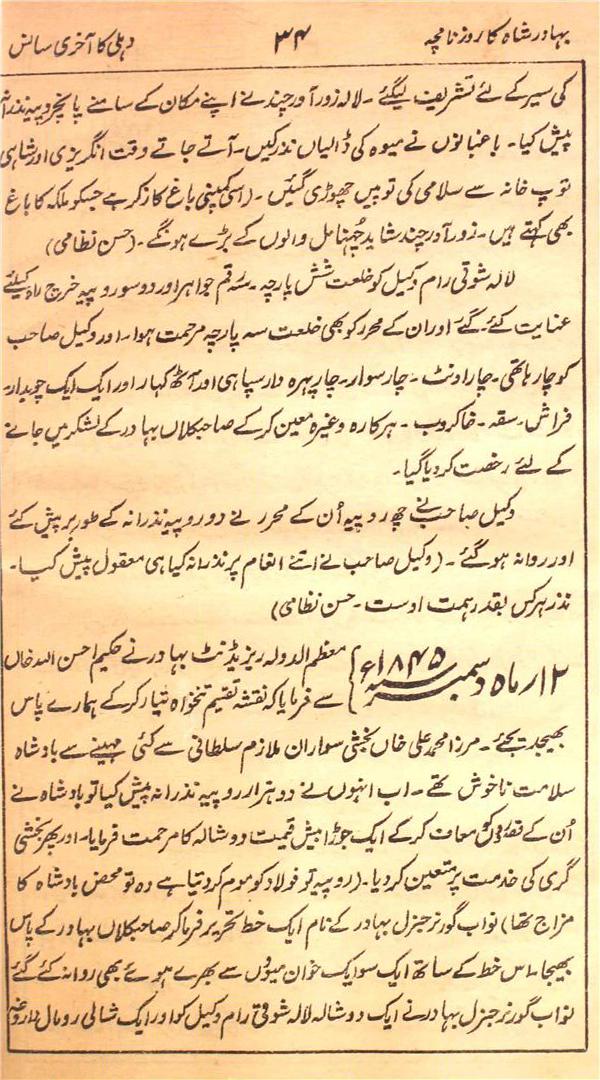 بہادر شاہ کا روزنامچہ ۳۴ دہلی کا آخری سانس
کی سیر کے لئے تشریف لیگئے ۔ لالہ زور آور چند نے اپنے مکان کے سامنے پانچروپیہ نذرانہ
پیش کیا۔ باغبانوں نے میوہ کی ڈالیاں نذر کیں۔ آتے جاتے وقت انگریزی اور شاہی
توپ خانہ سے سلامی کی توپیں چھوڑی گئیں ۔ (اسی کمپنی باغ کا ذکر ہے جسکو ملکہ کا باغ
بھی کہتے ہیں۔ زور آور چند شاید چُہنا مل والوں کے بڑے ہونگے ۔ (حسن نظامی)
لالہ شوقی رام وکیل کو خلعت شش پارچہ ۔ سہ رقم جواہر اور دو سو روپیہ خرچ راہ کیلئے
عنایت کئے گئے اور ان کے محرر کو بھی خلعت سہ پارچہ مرحمت ہوا۔ اور وکیل صاحب
کو چار ہاتھی ۔ چار اونٹ ۔ چار سوار ۔ چار پہرہ دار سپاہی اور آٹھ کہار اور ایک ایک چوبدار۔
فراش ۔ سقہ ۔ خاکروب ۔ ہرکارہ وغیرہ معین کرکے صاحبکلاں بہادر کے لشکر میں جانے
کے لئے رخصت کر دیا گیا۔
وکیل صاحب نے چھ روپیہ اُن کے محرر نے دو روپیہ نذرانہ کے طور پر پیش کئے
اور روانہ ہوگئے ۔ (وکیل صاحب نے اتنے انعام پر نذرانہ کیا ہی معقول پیش کیا۔
نذر ہرکس بقدر ہمت اوست ۔ حسن نظامی)
۱۲؍ ماہ دسمبر سنہ ۱۸۴۵ء } معظم الدولہ ریزیڈنٹ بہادر نے حکیم احسن اللہ خاں
سے فرمایا کہ نقشہ تقسیم تنخواہ تیار کرکے ہمارے پاس
بھیجدیجئے ۔ مرزا محمد علی خاں بخشی سواران ملازم سلطانی سے کئی مہینے سے بادشاہ
سلامت ناخوش تھے ۔ اب انہوں نے دو ہزار روپیہ نذرانہ پیش کیا تو بادشاہ نے
اُن کے قصوروں کو معاف کرکے ایک جوڑا بیش قیمت دوشالہ کا مرحمت فرمایا۔ اور پھر بخشی
گری کی خدمت پر متعین کر دیا ۔ (روپیہ تو فولاد کو موم کر دیتا ہے وہ تو محض بادشاہ کا
مزاج تھا) نواب گورنر جنرل بہادر کے نام ایک خط تحریر فرما کر صاحبکلاں بہادر کے پاس
بھیجا ۔ اس خط کے ساتھ ایک سو ایک خوان میووں سے بھرے ہوئے بھی روانہ کئے گئے
نواب گورنر جنرل بہادر نے ایک دوشالہ لالہ شوقی رام وکیل کو اور ایک شالی رومال داروغہ